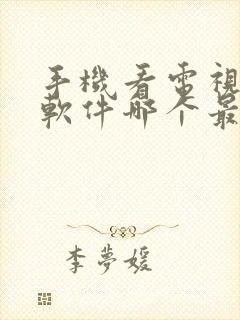 手機看電視
軟件哪个最
李夢媛